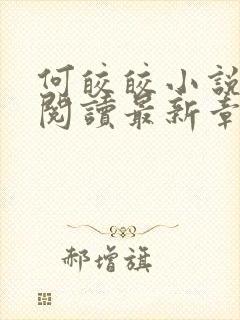 何皎皎小說
閱讀最新章
郝增旗